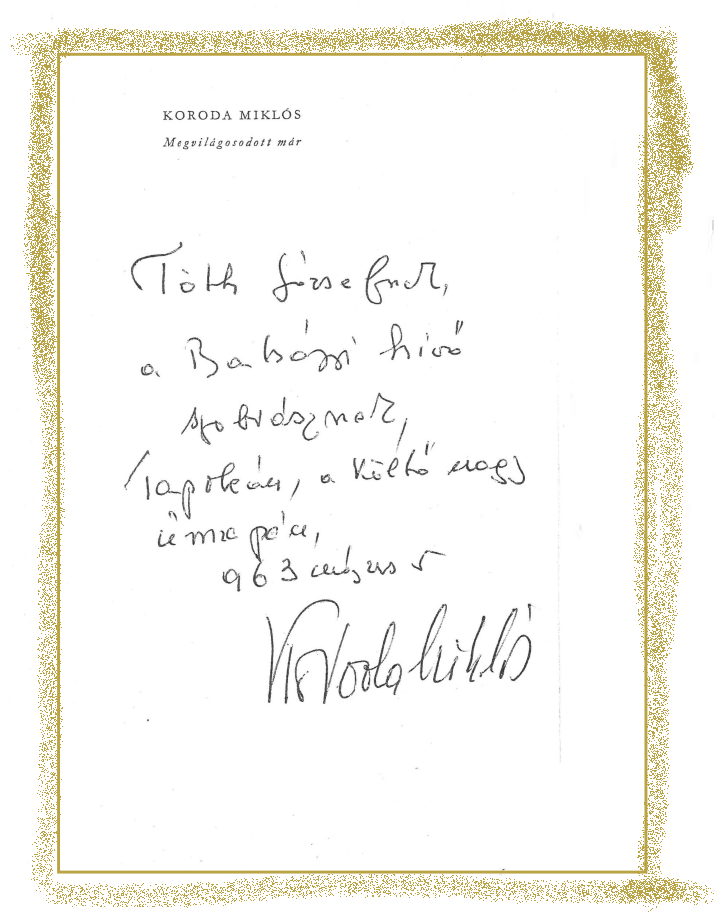 KORODA MIKLÓS
Megvilágosodott már
Tóth Józsefnek,
a Batsányi hívő
szobrásznak,
Tapolcán, a költő nagy
ünnepén,
963 május 5
Koroda Miklós